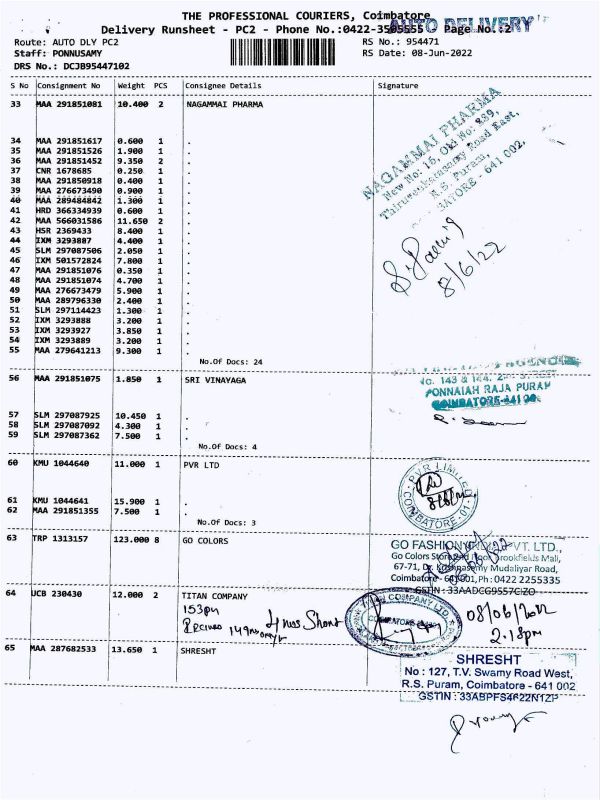 THE PROFESSIONAL COURIERS, Coimbatore
AUTO DELIVERY
Delivery Runsheet - PC2 - Phone No.:0422-3505555 - Page No.:2
Route: AUTO DLY PC2 RS No.: 954471
Staff: PONNUSAMY RS Date: 08-Jun-2022
DRS No.: DCJB95447102
S No Consignment No Weight PCS Consignee Details Signature
33 MAA 291851081 10.400 2 NAGAMMAI PHARMA
34 MAA 291851617 0.600 1 .
35 MAA 291851526 1.900 1 .
36 MAA 291851452 9.350 2 .
37 CNR 1678685 0.250 1 .
38 MAA 291850918 0.400 1 .
39 MAA 276673490 0.900 1 .
40 MAA 289484842 1.300 1 .
41 HRD 366334939 0.600 1 .
42 MAA 566031586 11.650 2 .
43 HSR 2369433 8.400 1 .
44 IXM 3293887 4.400 1 .
45 SLM 297087506 2.050 1 .
46 IXM 501572824 7.800 1 .
47 MAA 291851076 0.350 1 .
48 MAA 291851074 4.700 1 .
49 MAA 276673479 5.900 1 .
50 MAA 289796330 2.400 1 .
51 SLM 297114423 1.300 1 .
52 IXM 3293888 3.200 1 .
53 IXM 3293927 3.850 1 .
54 IXM 3293889 3.200 1 .
55 MAA 279641213 9.300 1 .
No.Of Docs: 24
NAGAMMAI PHARMA
New No: 15, Old No: 289,
Thiruvenkatasamy Road East,
R.S. Puram,
BATORE - 641 002.
8/6/22
56 MAA 291851075 1.850 1 SRI VINAYAGA
57 SLM 297087925 10.450 1 .
58 SLM 297087092 4.300 1 .
59 SLM 297087362 7.500 1 .
No.Of Docs: 4
No. 143 & 144,
PONNAIAH RAJA PURAM
COIMBATORE-641 00
60 KMU 1044640 11.000 1 PVR LTD
61 KMU 1044641 15.900 1 .
62 MAA 291851355 7.500 1 .
No.Of Docs: 3
PVR LIMITED
COIMBATORE-01
63 TRP 1313157 123.000 8 GO COLORS
GO FASHION PVT. LTD.,
Go Colors Store Brookfields Mall,
67-71, Dr. Krishnasamy Mudaliyar Road,
Coimbatore - 641001, Ph: 0422 2255335
GSTIN : 33AADCG9557C1ZO
64 UCB 230430 12.000 2 TITAN COMPANY
153pu
Received
Short
COMPANY LTD
08/06/2022
2.18pm
65 MAA 287682533 13.650 1 SHRESHT
SHRESHT
No : 127, T.V. Swamy Road West,
R.S. Puram, Coimbatore - 641 002
GSTIN : 33ABPFS4622N1ZP